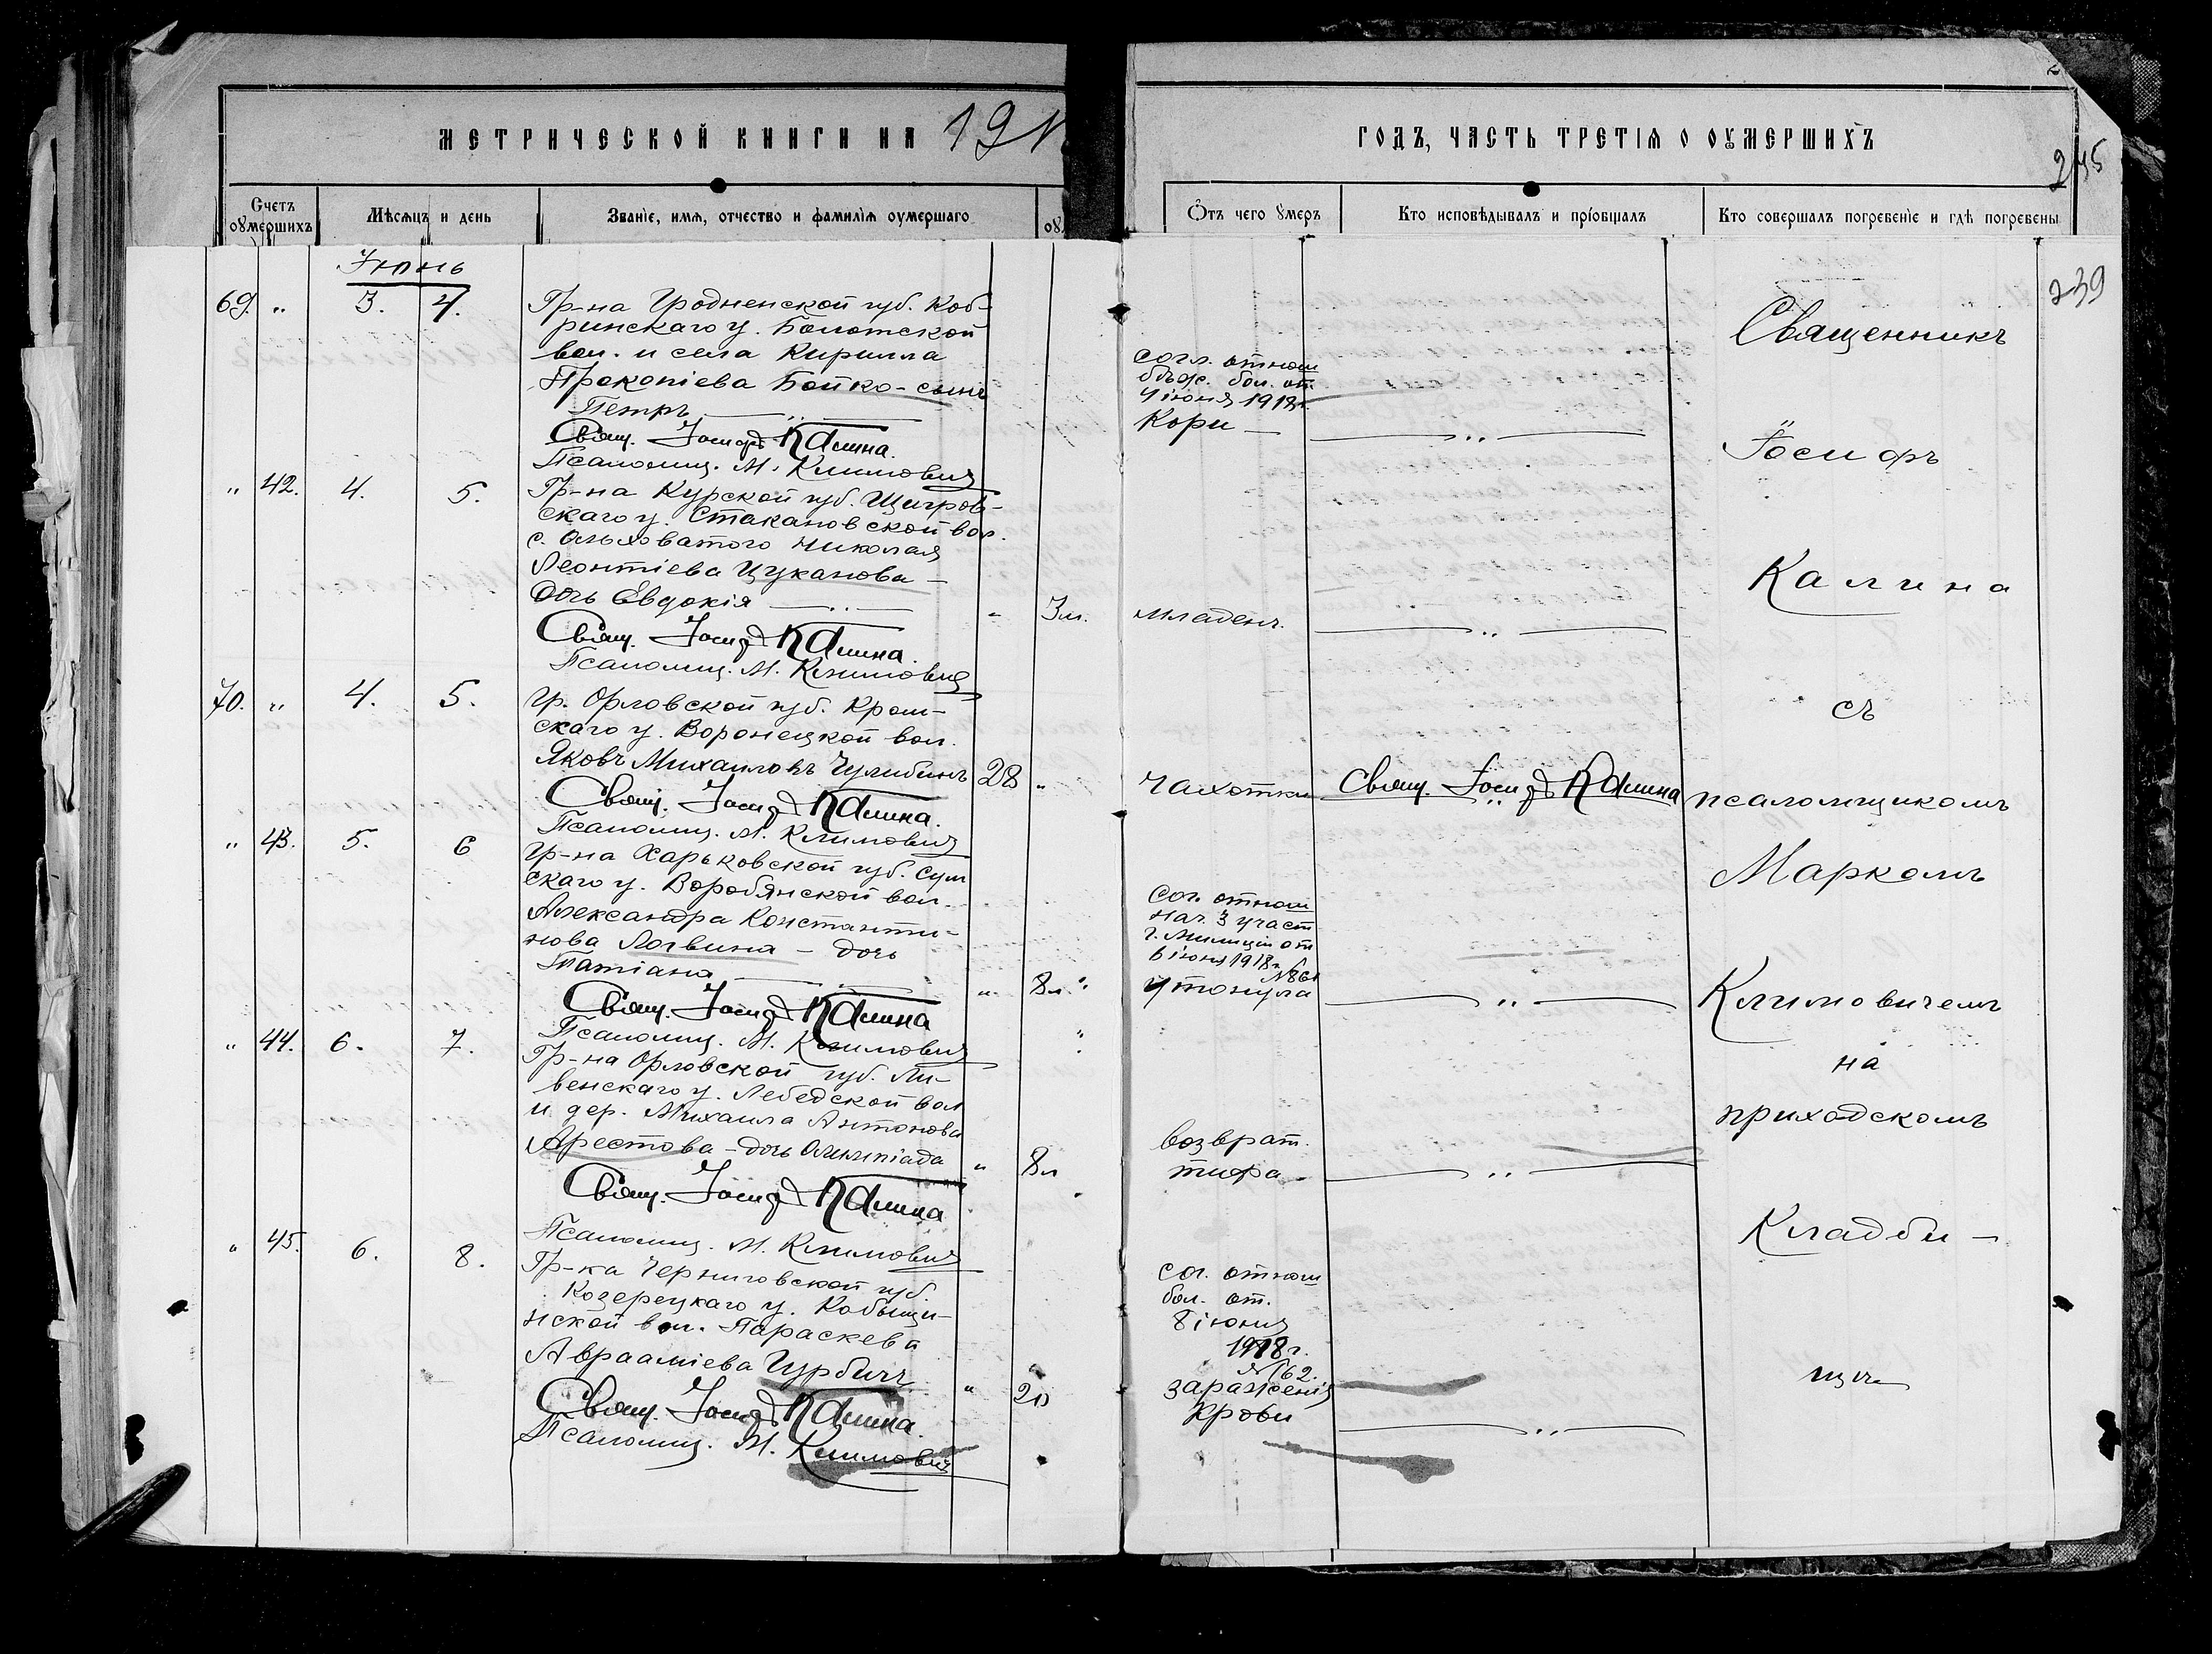 МЕТРИЧЕСКОЙ КНИГИ НА 191
ГОДЪ, ЧАСТЬ ТРЕТІЯ О ОУМЕРШИХЪ
245
Счетъ оумершихъ
Мѣсяцъ и день
Званіе, имя, отчество и фамилія оумершаго
оу
Ѿтъ чего оумеръ
Кто исповѣдывалъ и пріобщалъ
Кто совершалъ погребеніе и гдѣ погребены
239
Іюнь
69. " 3. 4.
Гр-на Гродненской губ. Коб-
ринскаго у. Болотской
вол. и села Кирилла
Прокопіева Бойко - сынъ
Петръ
Свящ. Іосифъ Калина.
Псаломщ. М. Климовичъ
согл. отнош
бѣж. бол. от.
4 іюня 1918г.
Кори
" 42. 4. 5.
Гр-на Курской губ. Щигров-
скаго у. Стакановской вол.
с. Ольховатого Николая
Леонтіева Цуканова -
дочь Евдокія
- 3 м.
младенч.
Свящ. Іосифъ Калина.
Псаломщ. М. Климовичъ
70. " 4. 5.
Гр. Орловской губ. Кром-
скаго у. Воронецкой вол.
Яковъ Михаиловъ Чулибинъ
28 "
чахотки
Свящ. Іосифъ Калина
Свящ. Іосифъ Калина.
Псаломщ. М. Климовичъ
" 43. 5. 6
Гр-на Харьковской губ. Сум
скаго у. Воробянской вол.
Александра Константи-
нова Логвина - дочь
Татіана
" 8 л. "
Сог. отнош
нач. 3 участ
г. милиціи от
6 іюня 1918г.
№861
утонула
Свящ. Іосифъ Калина
Псаломщ. М. Климовичъ
" 44. 6. 7.
Гр-на Орловской губ. Ли-
венскаго у. Лебедской вол
и дер. Михаила Антонова
Арестова - дочь Олимпіада
" 8 л
возврат.
тифа
Свящ. Іосифъ Калина
Псаломщ. М. Климовичъ
" 45. 6. 8.
Гр-ка Черниговской губ.
Козерецкаго у. Кобыщи-
нской вол. Параскева
Авраамiева Гурбичъ
" 20
Сог. отнош
бол. от.
8 іюня
1918г.
№162.
зараженія
Крови
Свящ. Іосифъ Калина.
Псаломщ. М. Климовичъ
Священникъ
Іосифъ
Калина
съ
псаломщикомъ
Маркомъ
Климовичемъ
на
приходскомъ
Кладби-
щѣ